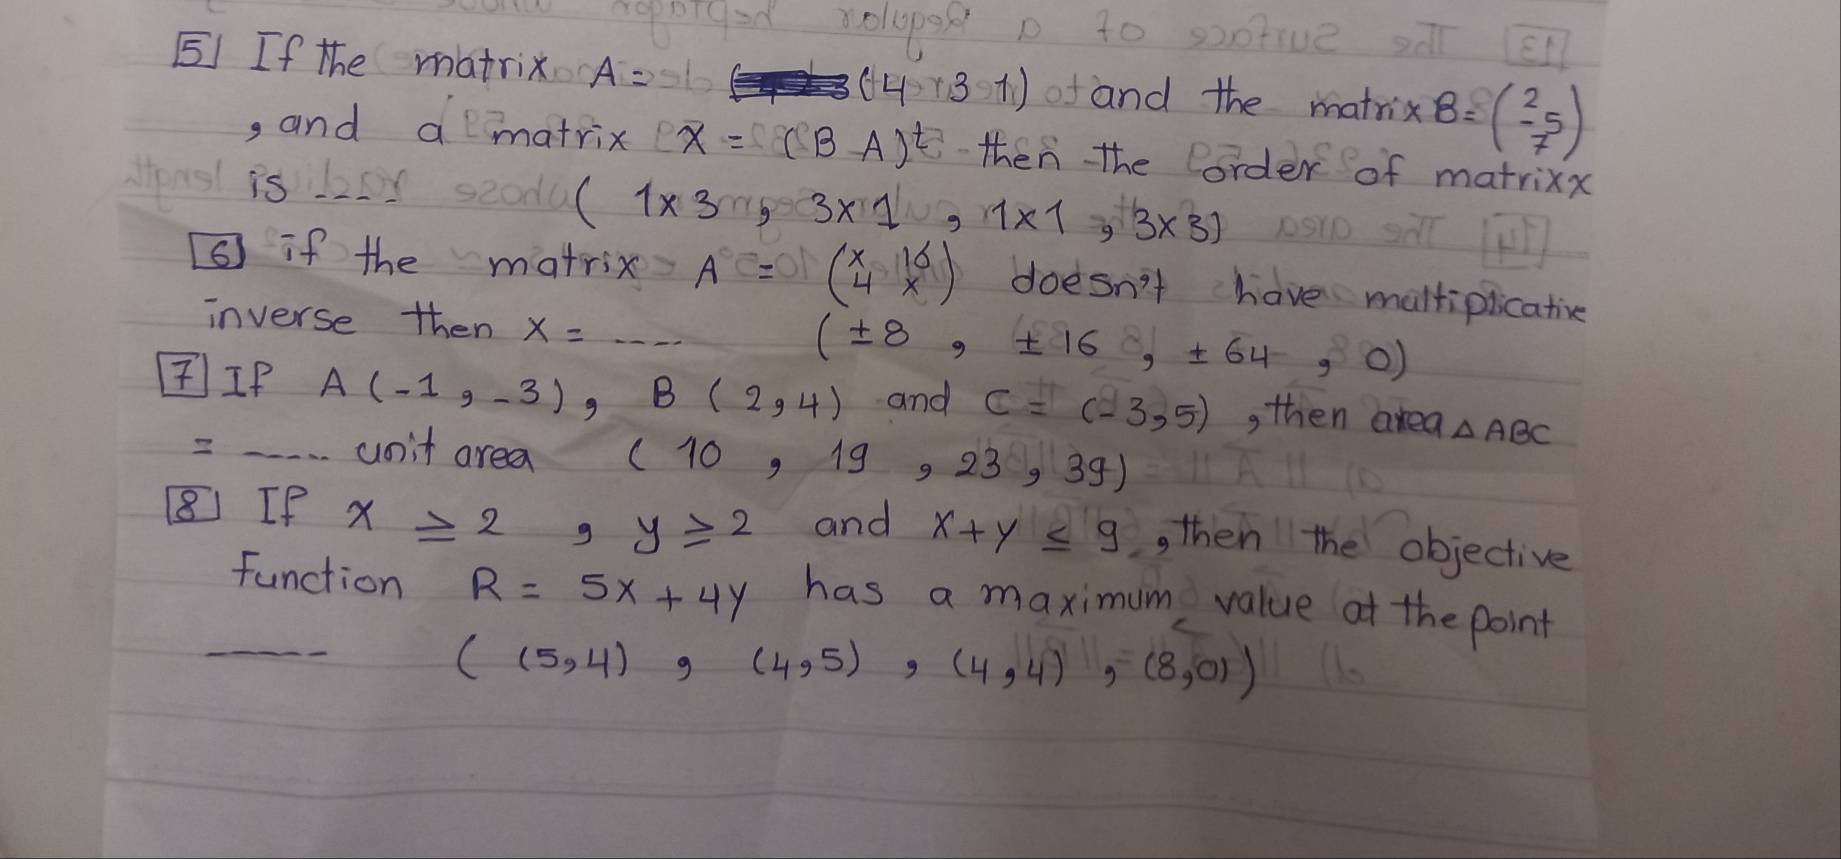 5 If the matrix A = (4 3 1) and the matrix B = (2 -5 7)
, and a matrix X = (B A)ᵗ then the order of matrix x
is .... ( 1x3 , 3x1 , 1x1 , 3x3)
6 if the matrix A = (x 16 4 x) doesn't have multiplicative
inverse then x = .... (±8 , ±16 , ±64 , 0)
7 If A (-1, -3), B (2,4) and C = (-3,5) , then area △ ABC
= ..... unit area ( 10 , 19 , 23 , 39)
8 If x ≥ 2 , y ≥ 2 and x+y ≤ 9 , then the objective
function R = 5x + 4y has a maximum value at the point
----- ( (5,4) , (4,5) , (4,4) , (8,0))